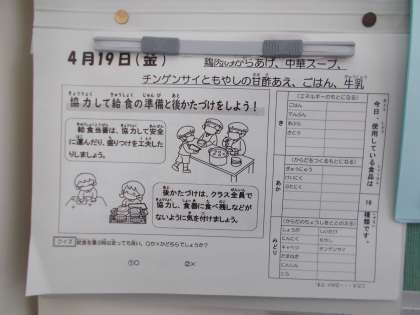 4月19日(金)
鶏肉のからあげ、中華スープ、
チンゲンサイともやしの甘酢あえ、ごはん、牛乳
協力して給食の準備と後かたづけをしよう！
給食当番は、協力して安全
に運んだり、盛りつけを工夫した
りしましょう。
後かたづけは、クラス全員で
協力し、食器に食べ残しなどが
ないように気を付けましょう。
クイズ
①○ ②×
今日、使用している食品は
種類です。
(エネルギーのもとになる)
き
ごはん
でんぷん
あぶら
さとう
(からだをつくるもとになる)
あか
ぎゅうにゅう
とりにく
(からだのちょうしをととのえる)
みどり
しょうが
にんにく
キャベツ
チンゲンサイ
たまねぎ
にんじん
もやし